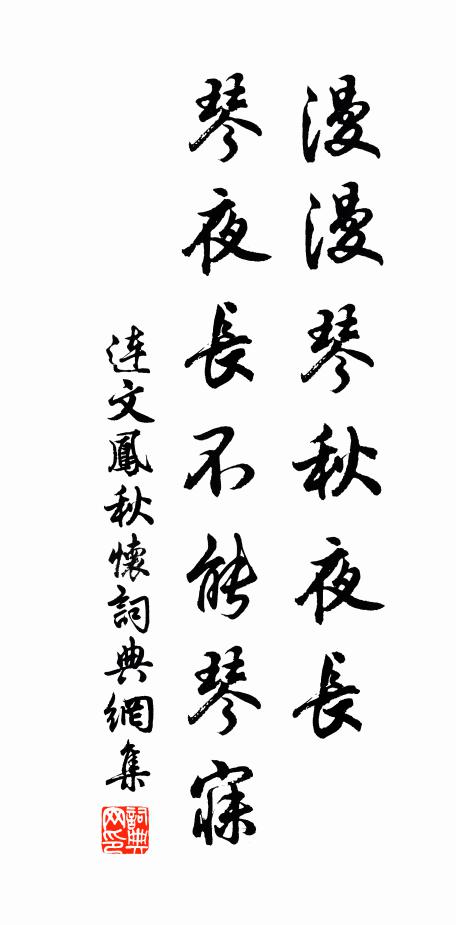 漫漫琴秋夜長
琴夜長不能琴寐
连文鳳秋懷詞典網集
詞典网印